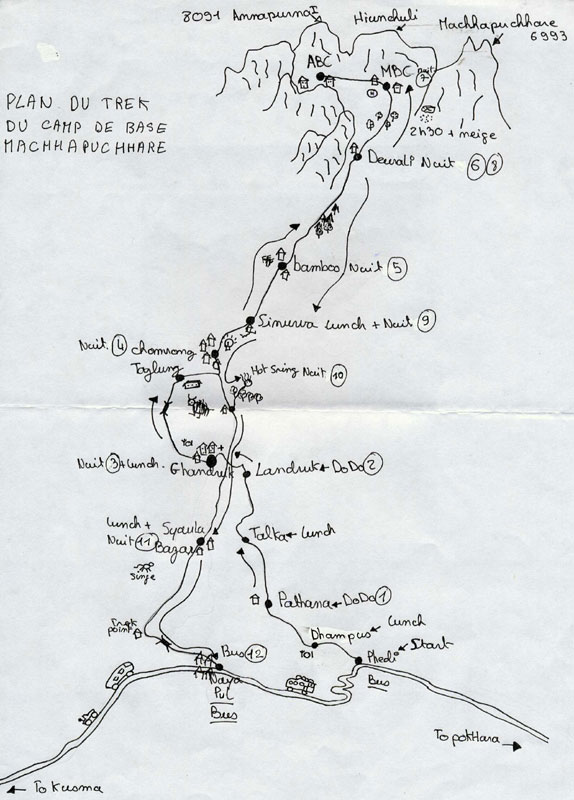 8091 Annapurna I
Hiunchuli
Machhapuchhare
6993
ABC
MBC nuit
7
PLAN DU TREK
DU CAMP DE BASE
MACHHAPUCHHARE
2h30 + neige
Dewali Nuit 6 8
bamboo Nuit 5
Sinuwa Lunch + Nuit 9
Nuit 4 chomrong
Taglung
Hot Sring Nuit 10
TOI
Nuit 3 + Lunch. Ghandruk
Landruk DoDo 2
Lunch +
Nuit 11
Syaula
Bazar
Talka Lunch
Singe
Pathana DoDo 1
Lunch
Dhampus
TOI
point
Start
Phedi
Bus
Bus 12
Naya
Pul
Bus
To pokhara
To Kusma